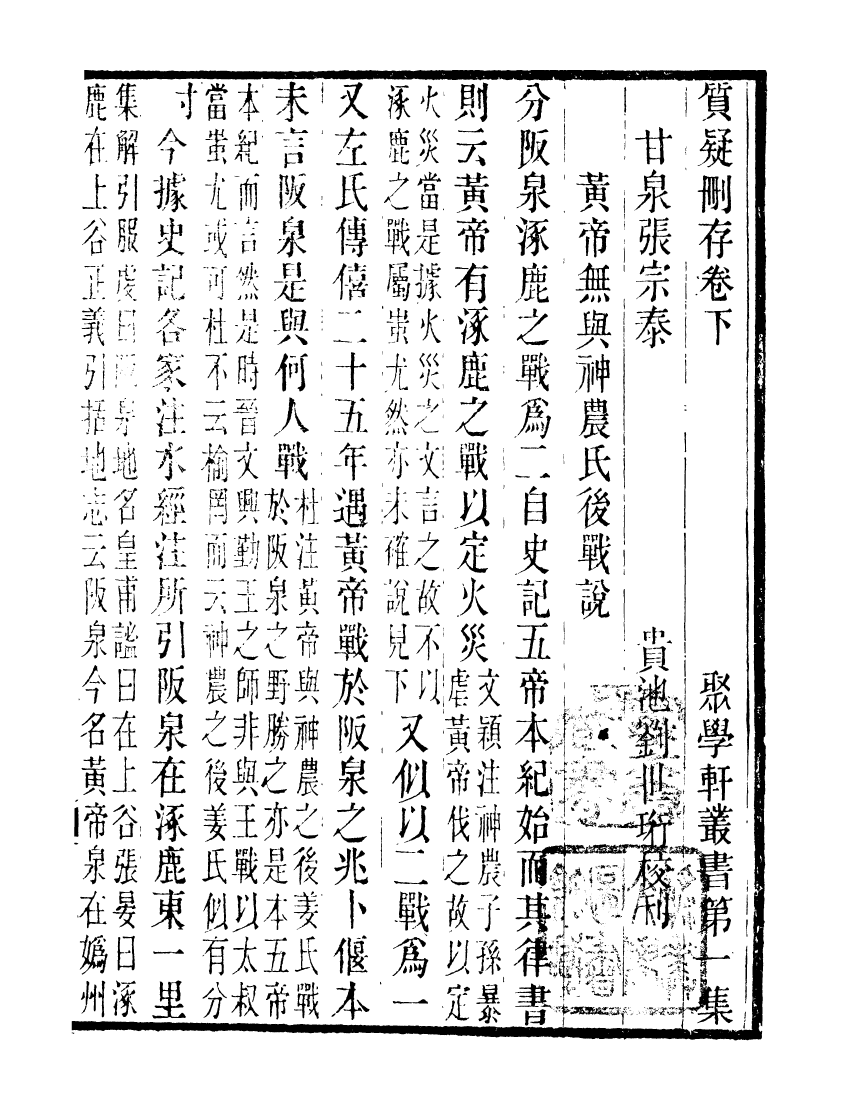 質疑刪存卷下 聚學軒叢書第一集
甘泉張宗泰 貴池劉世珩校刊
黃帝無與神農氏後戰說
分阪泉涿鹿之戰爲二自史記五帝本紀始而其律書
則云黃帝有涿鹿之戰以定火災
文穎注神農子孫暴
虐黃帝伐之故以定
火災當是據火災之文言之故不以
涿鹿之戰屬蚩尤然亦未確說見下
又似以二戰爲一
又左氏傳僖二十五年遇黃帝戰於阪泉之兆卜偃本
未言阪泉是與何人戰
杜注黃帝與神農之後姜氏戰
於阪泉之野勝之亦是本五帝
本紀而言然是時晉文興勤王之師非與王戰以太叔
當蚩尤或可杜不云榆罔而云神農之後姜氏似有分
寸
今據史記各家注水經注所引阪泉在涿鹿東一里
集解引服虔曰阪泉地名皇甫謐曰在上谷張晏曰涿
鹿在上谷正義引括地志云阪泉今名黃帝泉在嬀州